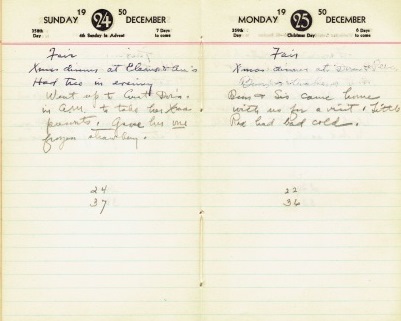 SUNDAY 19 24 50 DECEMBER
358th Day 4th Sunday in Advent 7 Days to come
Fair
Xmas dinner at
Had tree in evening
Went up to Aunt
in A.M. to take her Xmas
presents. Gave her one
frozen strawberry.
24
37
MONDAY 19 25 50 DECEMBER
359th Day Christmas Day 6 Days to come
Fair
Xmas dinner at
& Sis came home
with us for a visit. Little
had bad cold.
22
36